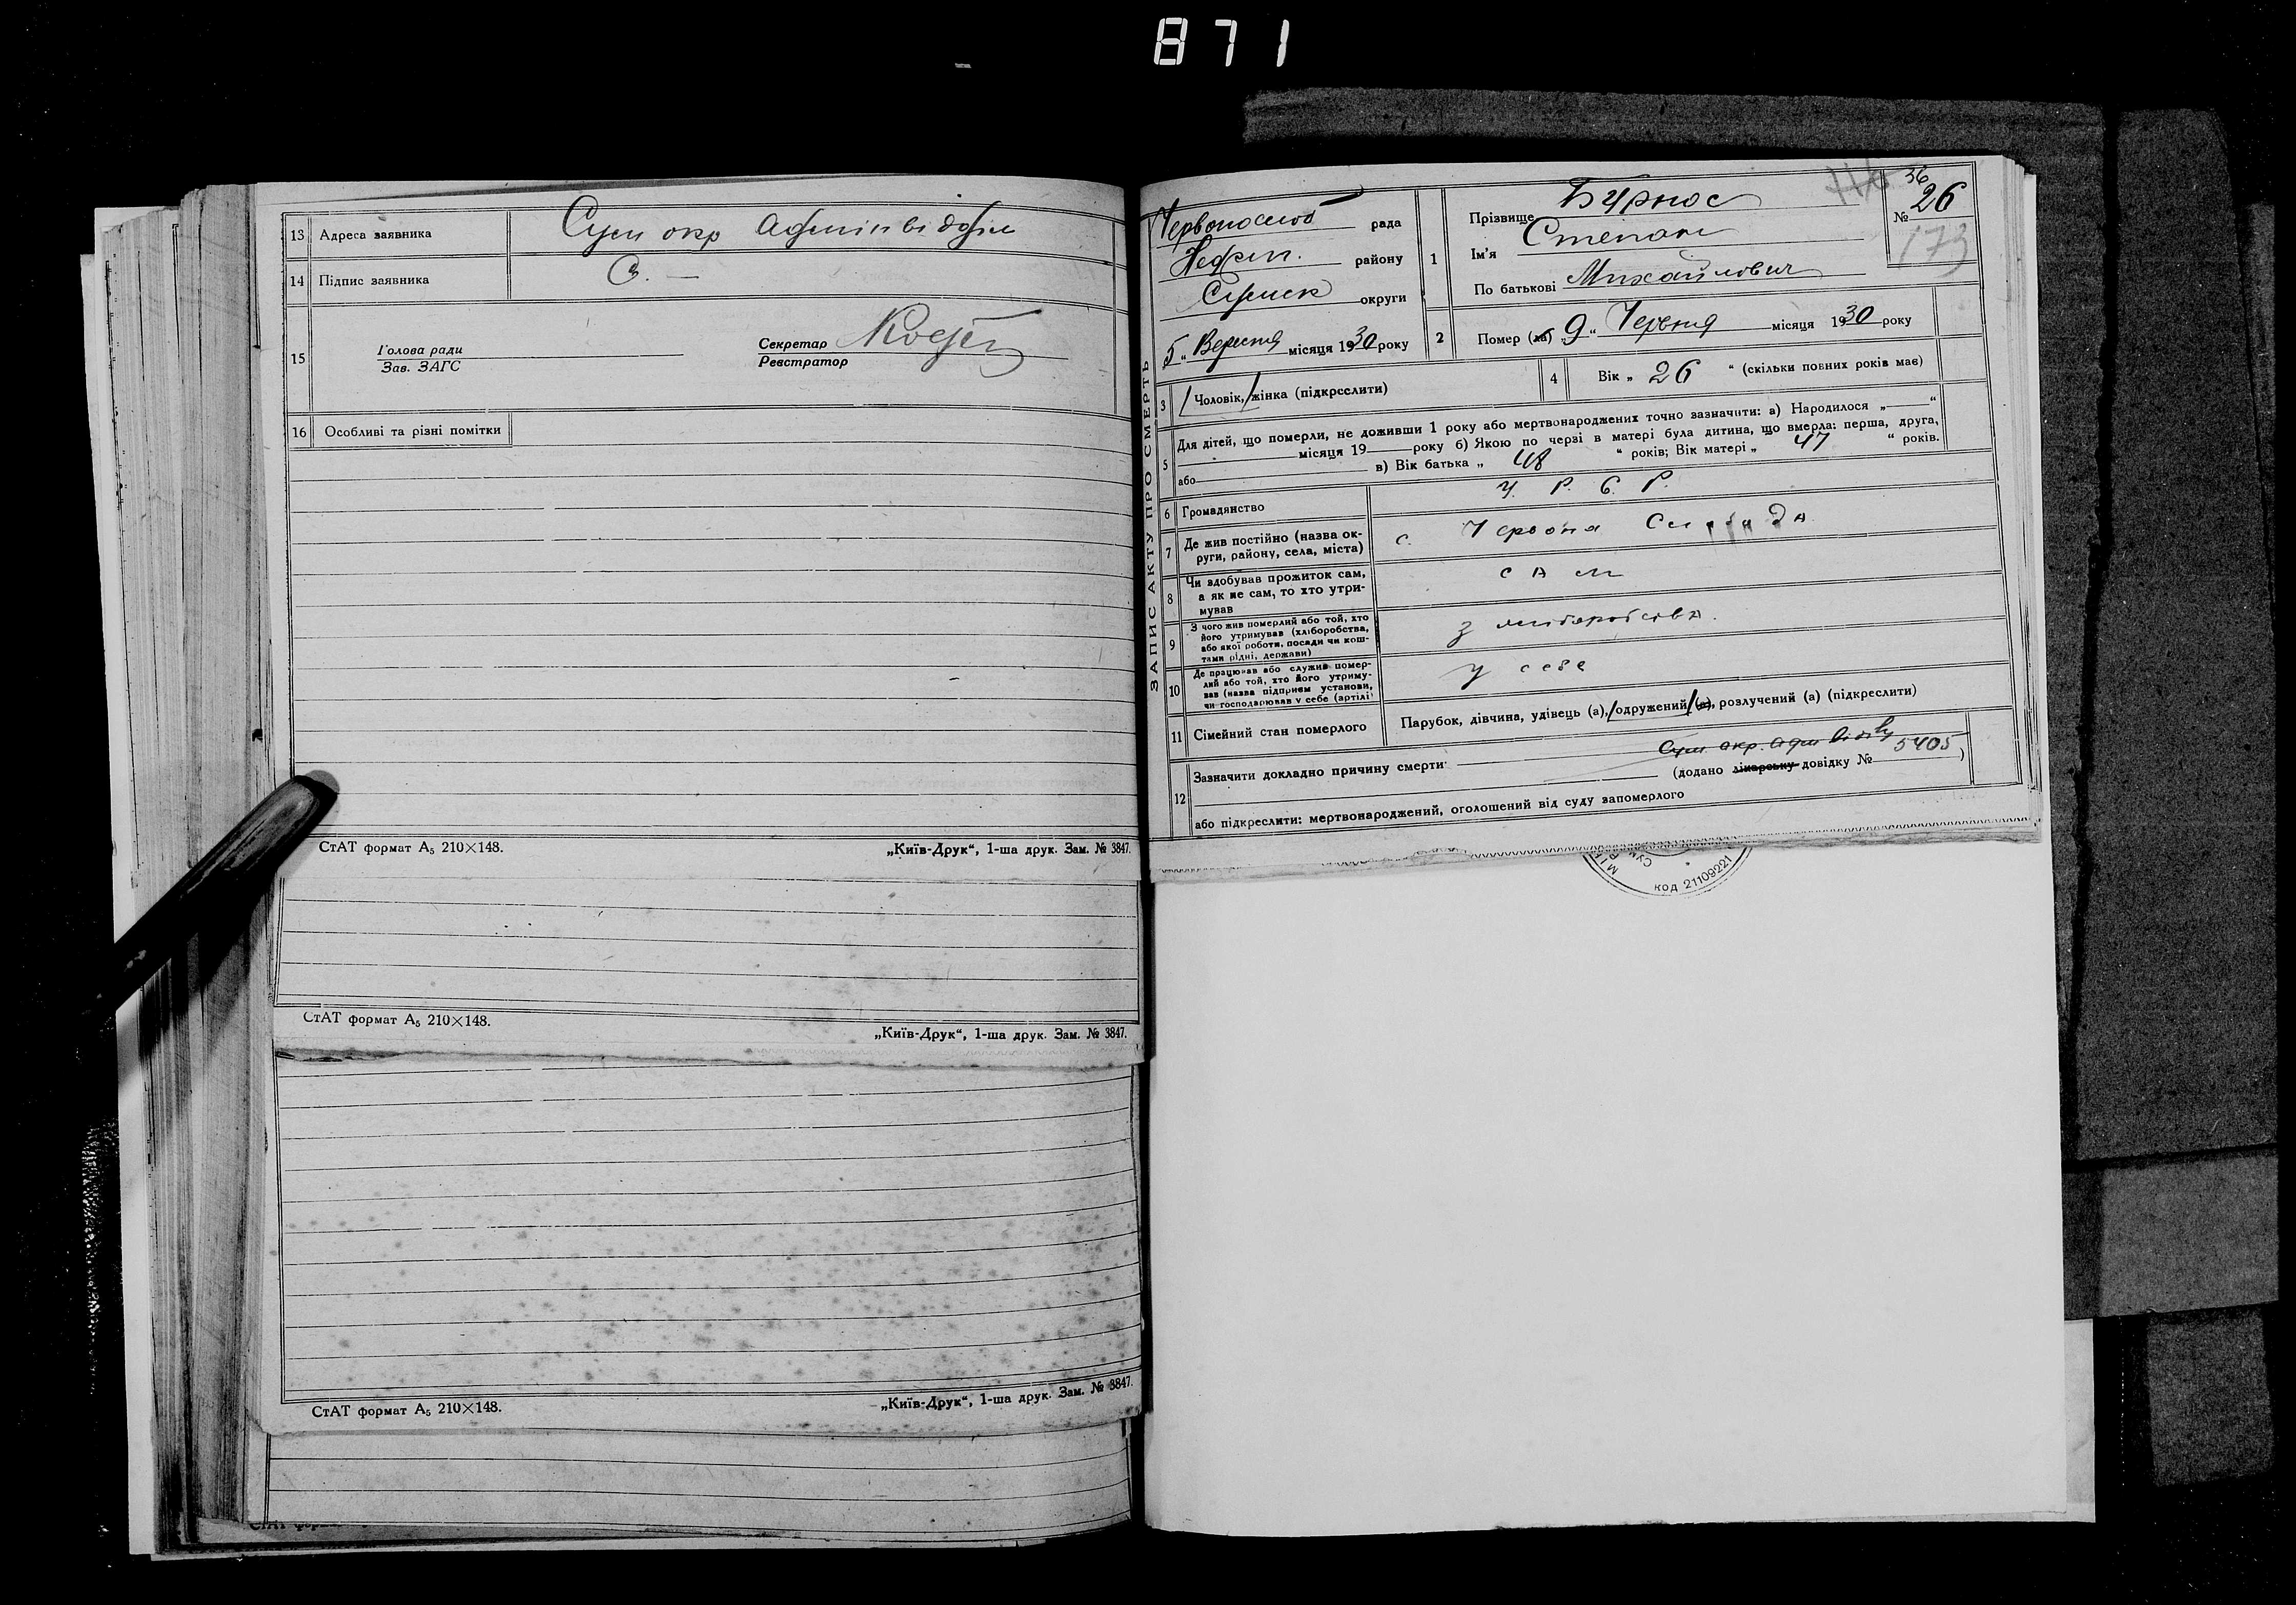 871
13 Адреса заявника Сум окр Адмінвідділ
14 Підпис заявника З. —
15 Голова ради
Зав. ЗАГС
Секретар
Реєстратор
16 Особливі та різні помітки
СтАТ формат А₅ 210×148. „Київ-Друк“, 1-ша друк. Зам. № 3847.
СтАТ формат А₅ 210×148. „Київ-Друк“, 1-ша друк. Зам. № 3847.
СтАТ формат А₅ 210×148. „Київ-Друк“, 1-ша друк. Зам. № 3847.
ЗАПИС АКТУ ПРО СМЕРТЬ
Червонослоб рада
Недриг. району
Сумськ округи
5 „ Вересня місяця 1930 року
36
№ 26
173
1 Прізвище Бирнос
Ім'я Степан
По батькові Михайлович
2 Помер (ла) „ 9 “ Червня місяця 1930 року
3 Чоловік, жінка (підкреслити)
4 Вік „ 26 “ (скільки повних років має)
5 Для дітей, що померли, не доживши 1 року або мертвонароджених точно зазначити: а) Народилося „ “
місяця 19 року б) Якою по черзі в матері була дитина, що вмерла: перша, друга,
або в) Вік батька „ 48 “ років; Вік матері „ 47 “ років.
6 Громадянство У. Р. С. Р.
7 Де жив постійно (назва ок-
руги, району, села, міста) с. Червона Слобода
8 Чи здобував прожиток сам,
а як не сам, то хто утри-
мував сам
9 З чого жив померлий або той, хто
його утримував (хліборобства,
або якої роботи, посади чи кош-
тами рідні, держави) з хліборобства.
10 Де працював або служив помер-
лий або той, хто його утриму-
вав (назва підприєм установи,
чи господарював у себе (артілі) у себе
11 Сімейний стан померлого Парубок, дівчина, удівець (а), одружений (а), розлучений (а) (підкреслити)
12 Зазначити докладно причину смерти Сум окр. адм відділу
(додано лікарську довідку № 5405)
або підкреслити: мертвонароджений, оголошений від суду запомерлого
код 21109221